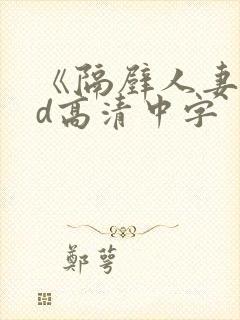 《隔壁人妻
d高清中字
郑萼